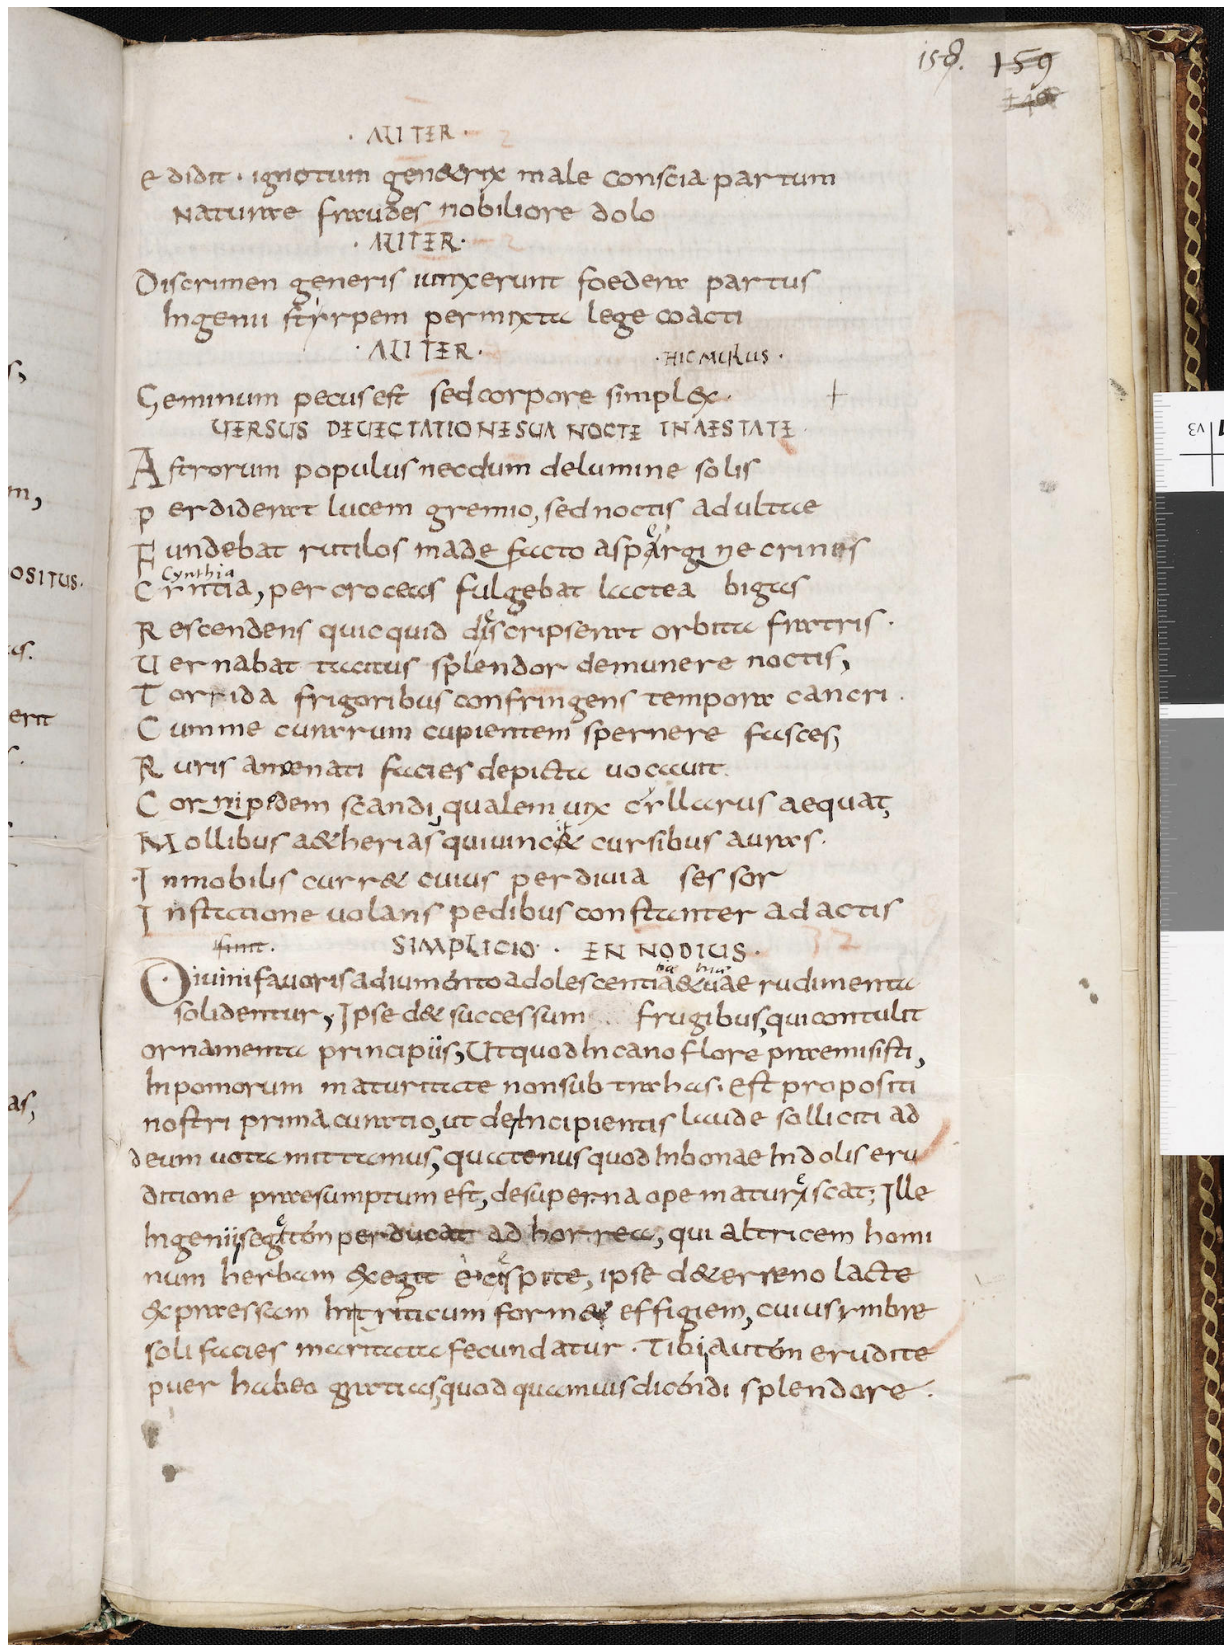 158. 159
· ALITER ·
edidit · ignotum genetrix male conscia partum
naturae fraudes nobiliore dolo
· ALITER ·
Discrimen generis iunxcerunt foedera partus
Ingenii styrpem permixta lege coacti
· ALITER · · HIC MULUS ·
Geminum pecus est sed corpore simplex. +
UERSUS DE LECTATIONE SUA NOCTE IN AESTATE
Astrorum populus necdum de lumine solis
perdiderat lucem gremio, sed noctis adultae
Fundebat rutilos madefacto aspargine crines
Cynthia
Cyntia, per croceas fulgebat lactea bigas
Rescendens quicquid discripserat orbita fratris.
Uernabat tacitus splendor de munere noctis,
Torrida frigoribus confringens tempora cancri.
Cum me curarum cupientem spernere fasces,
Ruris amoenati facies depicta uocauit.
Cornipedem scandi, qualem uix cyllarus aequat,
Mollibus aetherias qui uincet cursibus auras.
Inmobilis curret cuius per diuia sessor
In statione uolans pedibus constanter adactis
SIMPLICIO · ENNODIUS ·
Diuini fauoris adiumento adolescentiae tuae rudimenta
solidentur, Ipse det successum frugibus, qui contulit
ornamenta principiis, Ut quod in cano flore praemisisti,
In pomorum maturitate non subtrahas. est propositi
nostri prima curatio, ut de incipientis laude solliciti ad
deum uota mittamus, quatenus quod in bonae indolis eru
ditione praesumptum est, de superna ope maturiscat; Ille
Ingenii segitem perducat ad horrea, qui altricem homi
num herbam exegit e cispite, ipse det terreno lacte
expressam in triticum formae effigiem, cuius ymbre
soli facies maritata fecundatur. Tibi autem erudite
puer habeo gratias, quod quamuis dicendi splendore.